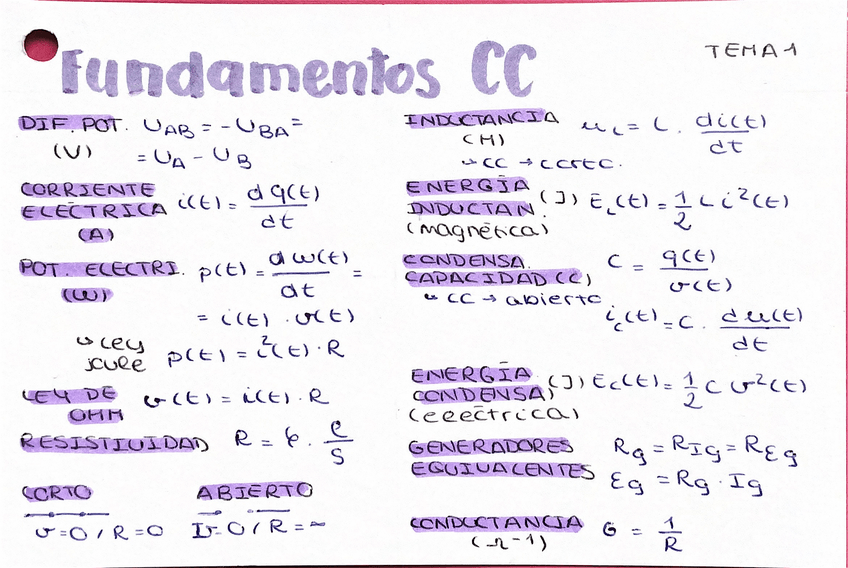 Fundamentos CC
TEMA 1
DIF. POT. U_AB = -U_BA =
(V) = U_A - U_B
CORRIENTE
ELÉCTRICA i(t) = dq(t)/dt
(A)
POT. ELECTRI. p(t) = dw(t)/dt =
(W)
= i(t) · v(t)
↳ Ley
Joule p(t) = i²(t) · R
LEY DE v(t) = i(t) · R
OHM
RESISTIVIDAD R = ρ · l/S
CORTO ABIERTO
v=0 / R=0 I=0 / R=∞
INDUCTANCIA u_L = L · di(t)/dt
(H)
↳ CC → corto.
ENERGÍA
INDUCTAN. (J) E_L(t) = 1/2 L i²(t)
(magnética)
CONDENSA. C = q(t)/v(t)
CAPACIDAD (C)
↳ CC → abierto
i_c(t) = C · du(t)/dt
ENERGÍA
CONDENSA) (J) E_C(t) = 1/2 C v²(t)
(eléctrica)
GENERADORES R_g = R_Ig = R_Eg
EQUIVALENTES E_g = R_g · I_g
CONDUCTANCIA G = 1/R
(Ω-1)